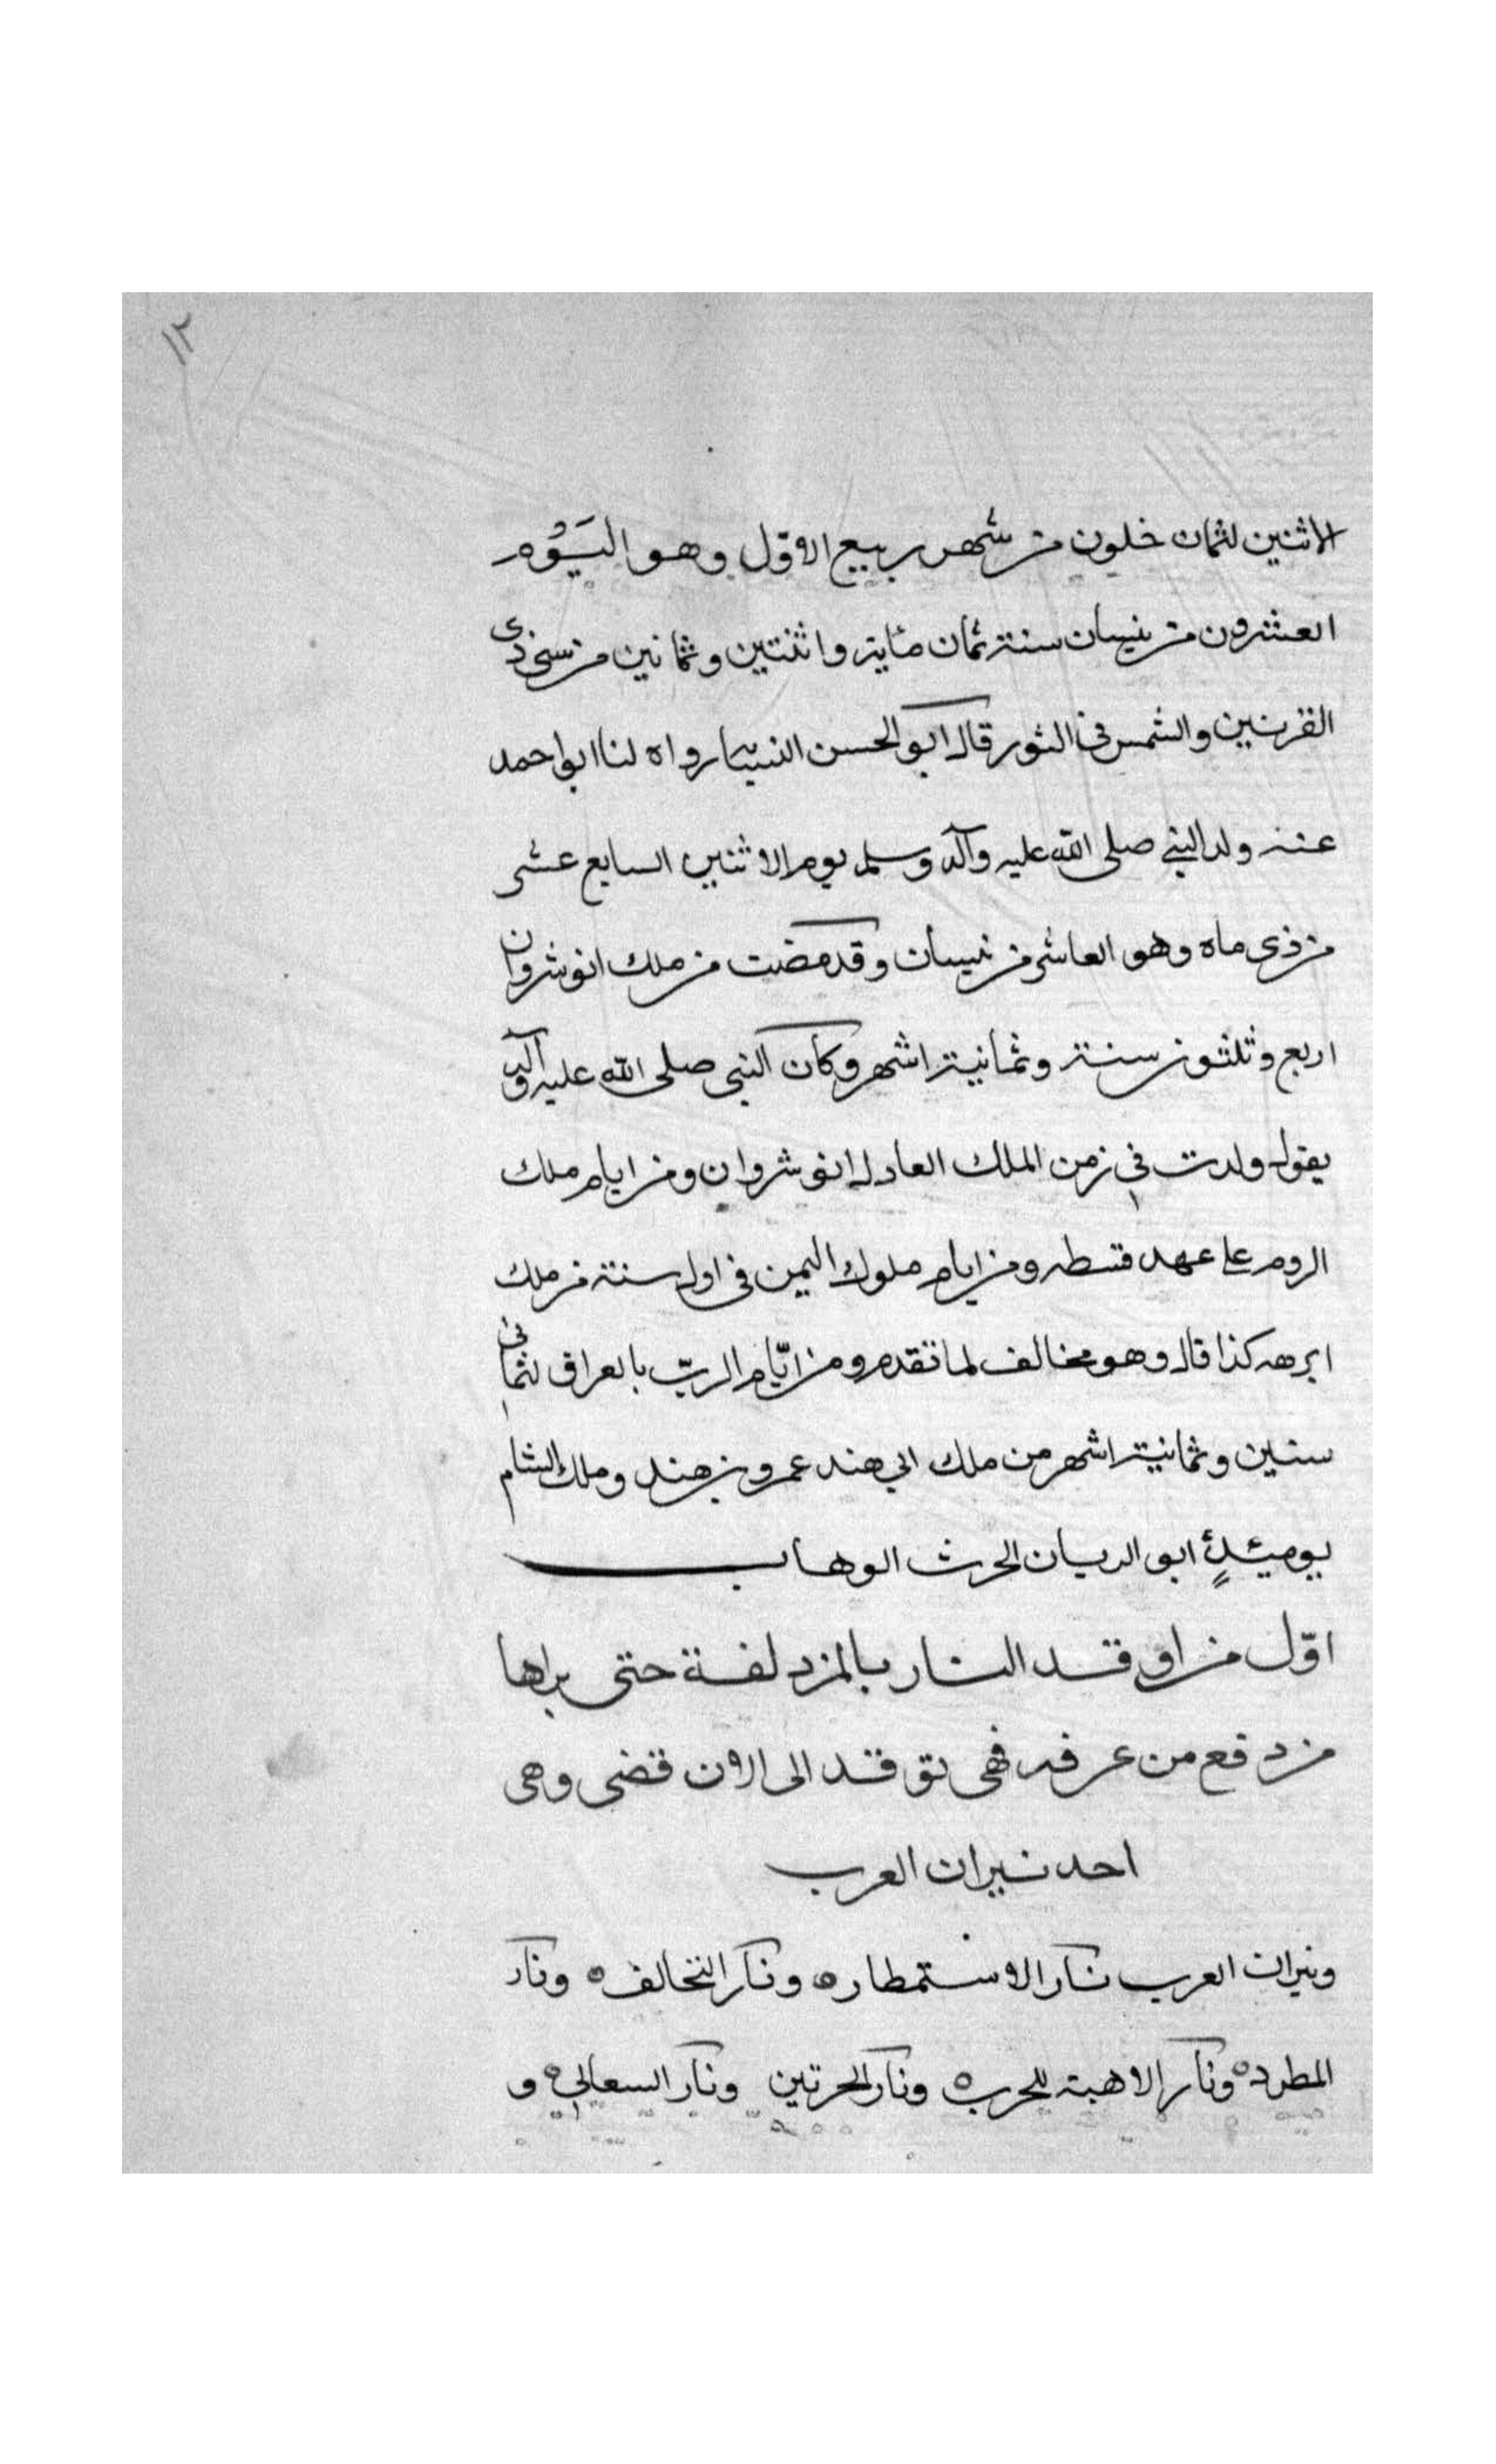 ١٢
الاثنين لثمان خلون من شهر ربيع الاوّل وهو اليَوْم
العشرون من نيسان سنة ثمان مئاية واثنتين وثمانين من سني ذي
القرنين والشمس في الثور قال ابو الحسن النسيبا رواه لنا ابو احمد
عنه ولد النبي صلى الله عليه وآله وسلم يوم الاثنين السابع عشر
من ذي ماه وهو العاشر من نيسان وقد مضت من ملك انوشروان
اربع وثلثون سنة وثمانية اشهر وكان النبي صلى الله عليه وآله
يقول ولدت في زمن الملك العادل انوشروان ومن ايام ملك
الروم على عهد قسطه ومن ايام ملوك اليمن في اول سنة من ملك
ابرهه كذا قال وهو مخالف لما تقدم ومن ايّام الربّ بالعراق لثماني
سنين وثمانية اشهر من ملك ابي هند عمرو بن هند وملك الشام
يوميئذٍ ابو الديان الحرث الوهاب
اوّل من اوقد النار بالمزدلفة حتى يراها
من دفع من عرفه فهي توقد الى الان قضى وهي
احد نيران العرب
ونيران العرب نار الاستمطاره ونار التحالف ه ونار
المطرده ونار الاهبة للحرب ه ونار الحرتين ونار السعالي ه و